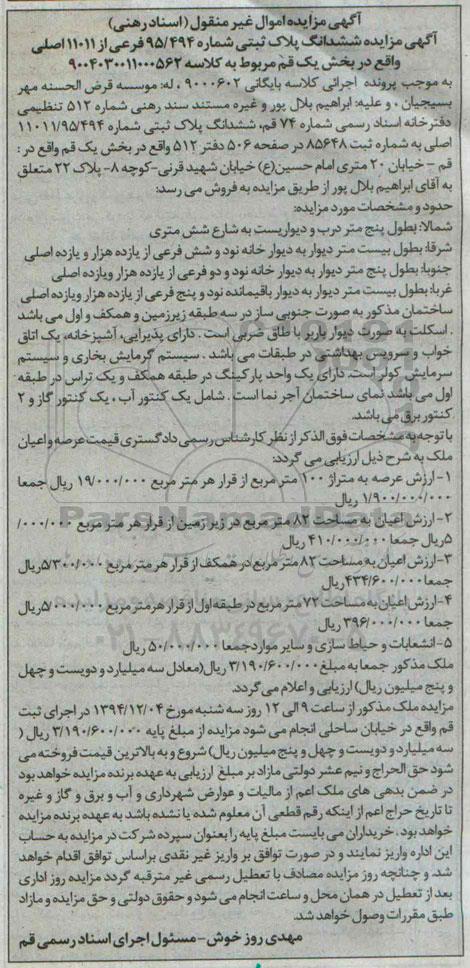 آگهی مزایده اموال غیر منقول (اسناد رهنی)
آگهی مزایده ششدانگ پلاک ثبتی شماره ۹۵/۴۹۴ فرعی از ۱۱۰۱۱ اصلی
واقع در بخش یک قم مربوط به کلاسه ۹۰۰۴۰۳۰۰۱۱۰۰۰۵۶۲
به موجب پرونده اجرائی کلاسه بایگانی ۹۰۰۰۶۰۲ ، له: موسسه قرض الحسنه مهر
بسیجیان ، و علیه: ابراهیم بلال پور و غیره مستند سند رهنی شماره ۵۱۲ تنظیمی
دفترخانه اسناد رسمی شماره ۷۴ قم، ششدانگ پلاک ثبتی شماره ۱۱۰۱۱/۹۵/۴۹۴
اصلی به شماره ثبت ۸۵۶۴۸ در صفحه ۵۰۶ دفتر ۵۱۲ واقع در بخش یک قم واقع در :
قم - خیابان ۲۰ متری امام حسین(ع) خیابان شهید قرنی-کوچه ۸- پلاک ۲۲ متعلق
به آقای ابراهیم بلال پور از طریق مزایده به فروش می رسد:
حدود و مشخصات مورد مزایده:
شمالا: بطول پنج متر درب و دیواریست به شارع شش متری
شرقا: بطول بیست متر دیوار به دیوار خانه نود و شش فرعی از یازده هزار و یازده اصلی
جنوبا: بطول پنج متر دیوار به دیوار خانه نود و دو فرعی از یازده هزار ویازده اصلی
غربا: بطول بیست متر دیوار به دیوار باقیمانده نود و پنج فرعی از یازده هزار ویازده اصلی
ساختمان مذکور به صورت جنوبی ساز در سه طبقه زیرزمین و همکف و اول می باشد
. اسکلت به صورت دیوار باربر با طاق ضربی است . دارای پذیرایی، آشپزخانه، یک اتاق
خواب و سرویس بهداشتی در طبقات می باشد . سیستم گرمایش بخاری و سیستم
سرمایش کولر است. دارای یک واحد پارکینگ در طبقه همکف و یک تراس در طبقه
اول می باشد نمای ساختمان آجر نما است . شامل یک کنتور آب ، یک کنتور گاز و ۲
کنتور برق می باشد.
با توجه به مشخصات فوق الذکر از نظر کارشناس رسمی دادگستری قیمت عرصه و اعیان
ملک به شرح ذیل ارزیابی می گردد:
۱- ارزش عرصه به متراژ ۱۰۰ متر مربع از قرار هر متر مربع ۱۹/۰۰۰/۰۰۰ ریال جمعا
۱/۹۰۰/۰۰۰/۰۰۰ ریال
۲- ارزش اعیان به مساحت ۸۲ متر مربع در زیر زمین از قرار هر متر مربع ۰۰۰/۰۰۰/
۵ریال جمعا ۴۱۰/۰۰۰/۰۰۰ ریال
۳-ارزش اعیان به مساحت ۸۲ متر مربع در همکف از قرار هر متر مربع ۵/۳۰۰/۰۰۰ریال
جمعا ۴۳۴/۶۰۰/۰۰۰ریال
۴- ارزش اعیان به مساحت ۷۲ متر مربع در طبقه اول از قرار هر متر مربع ۵/۰۰۰/۰۰۰ریال
جمعا ۳۹۶/۰۰۰/۰۰۰ ریال
۵- انشعابات و حیاط سازی و سایر موارد جمعا ۵۰/۰۰۰/۰۰۰ ریال
ملک مذکور جمعا به مبلغ ۳/۱۹۰/۶۰۰/۰۰۰ ریال(معادل سه میلیارد و دویست و چهل
و پنج میلیون ریال) ارزیابی و اعلام می گردد.
مزایده ملک مذکور از ساعت ۹ الی ۱۲ روز سه شنبه مورخ ۱۳۹۴/۱۲/۰۴ در اجرای ثبت
قم واقع در خیابان ساحلی انجام می شود مزایده از مبلغ پایه ۳/۱۹۰/۶۰۰/۰۰۰ ریال (
سه میلیارد و دویست و چهل و پنج میلیون ریال) شروع و به بالاترین قیمت فروخته می
شود حق الحراج و نیم عشر دولتی مازاد بر مبلغ ارزیابی به عهده برنده مزایده خواهد بود
در ضمن بدهی های ملک اعم از مالیات و عوارض شهرداری و آب و برق و گاز و غیره
تا تاریخ حراج اعم از اینکه رقم قطعی آن معلوم شده یا نشده باشد به عهده برنده مزایده
خواهد بود . خریداران می بایست مبلغ پایه را بعنوان سپرده شرکت در مزایده به حساب
این اداره واریز نمایند و در صورت توافق بر واریز غیر نقدی براساس توافق اقدام خواهد
شد. و چنانچه روز مزایده مصادف با تعطیل رسمی غیر مترقبه گردد مزایده روز اداری
بعد از تعطیل در همان محل و ساعت انجام می شود و حقوق دولتی و حق مزایده و مازاد
طبق مقررات وصول خواهد شد.
مهدی روز خوش - مسئول اجرای اسناد رسمی قم
ParsNamadData
۰۲۱-۸۸۳۴۹۶۷۰